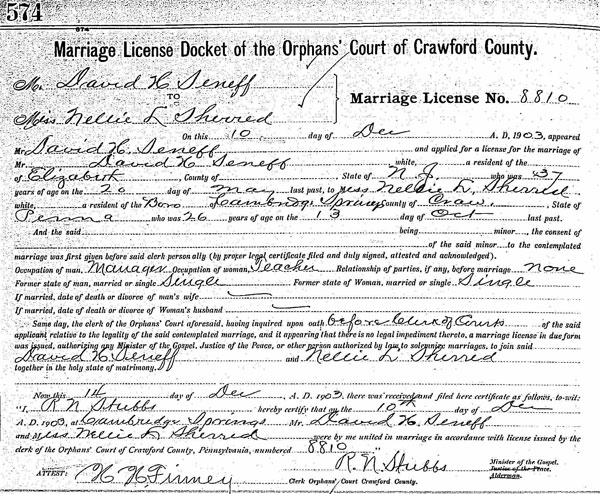 574
574
Marriage License Docket of the Orphans' Court of Crawford County.
Mr. David H Seneff
TO
Miss Nellie L Sherred
Marriage License No. 8810
On this 10 day of Dec A. D. 1903, appeared
Mr David H. Seneff and applied for a license for the marriage of
Mr. David H Seneff white, a resident of the
of Elizabeth, County of State of N J. who was 37
years of age on the 20 day of May last past, to Miss Nellie L. Sherred
white, a resident of the Boro of Cambridge Springs County of Craw, State of
Penna who was 26 years of age on the 13 day of Oct last past.
And the said being minor, the consent of
of the said minor to the contemplated
marriage was first given before said clerk personally (by proper legal certificate filed and duly signed, attested and acknowledged).
Occupation of man, Manager Occupation of woman, Teacher Relationship of parties, if any, before marriage none
Former state of man, married or single Single Former state of Woman, married or single Single
If married, date of death or divorce of man's wife
If married, date of death or divorce of Woman's husband
Same day, the clerk of the Orphans' Court aforesaid, having inquired upon oath before Clerk of Courts of the said
applicant relative to the legality of the said contemplated marriage, and it appearing that there is no legal impediment thereto, a marriage license in due form
was issued, authorizing any Minister of the Gospel, Justice of the Peace, or other person authorized by law to solemnize marriages, to join said
David H Seneff and Nellie L Sherred
together in the holy state of matrimony.
Now this 14 day of Dec A. D. 1903, there was received and filed here certificate as follows, to-wit:
"I, R N Stubbs hereby certify that on the 10th day of Dec
A. D. 1903, at Cambridge Springs Mr. David H. Seneff
and Miss Nellie L Sherred were by me united in marriage in accordance with license issued by the
clerk of the Orphans' Court of Crawford County, Pennsylvania, numbered 8810
R. N Stubbs
Minister of the Gospel.
Justice of the Peace.
Alderman.
ATTEST: H H Finney Clerk Orphans' Court Crawford County.